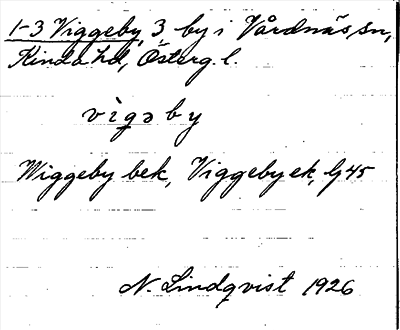 1-3 Viggeby, 3, by i Vårdnäs sn,
Kinda hd, Österg. l.
vìgəby
Wiggeby bek, Viggeby ek, Gj 45
N. Lindqvist 1926